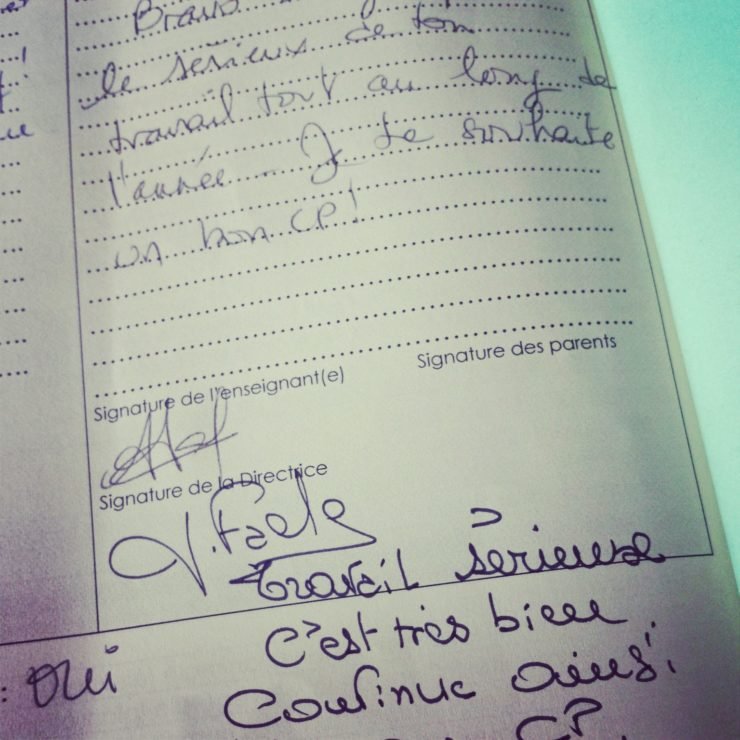 Bravo
le sérieux de ton
travail tout au long de
l'année. Je te souhaite
un bon CP!
Signature de l'enseignant(e)
Signature des parents
Signature de la Directrice
Travail sérieuse
C'est très bien
Continue ainsi.
: Oui
CP.